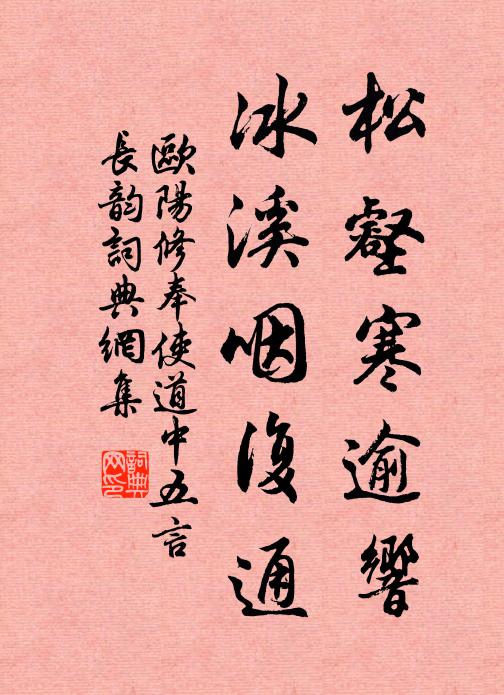 松壑寒逾響
冰溪咽復通
歐陽修奉使道中五言
長韵詞典網集
詞典網印